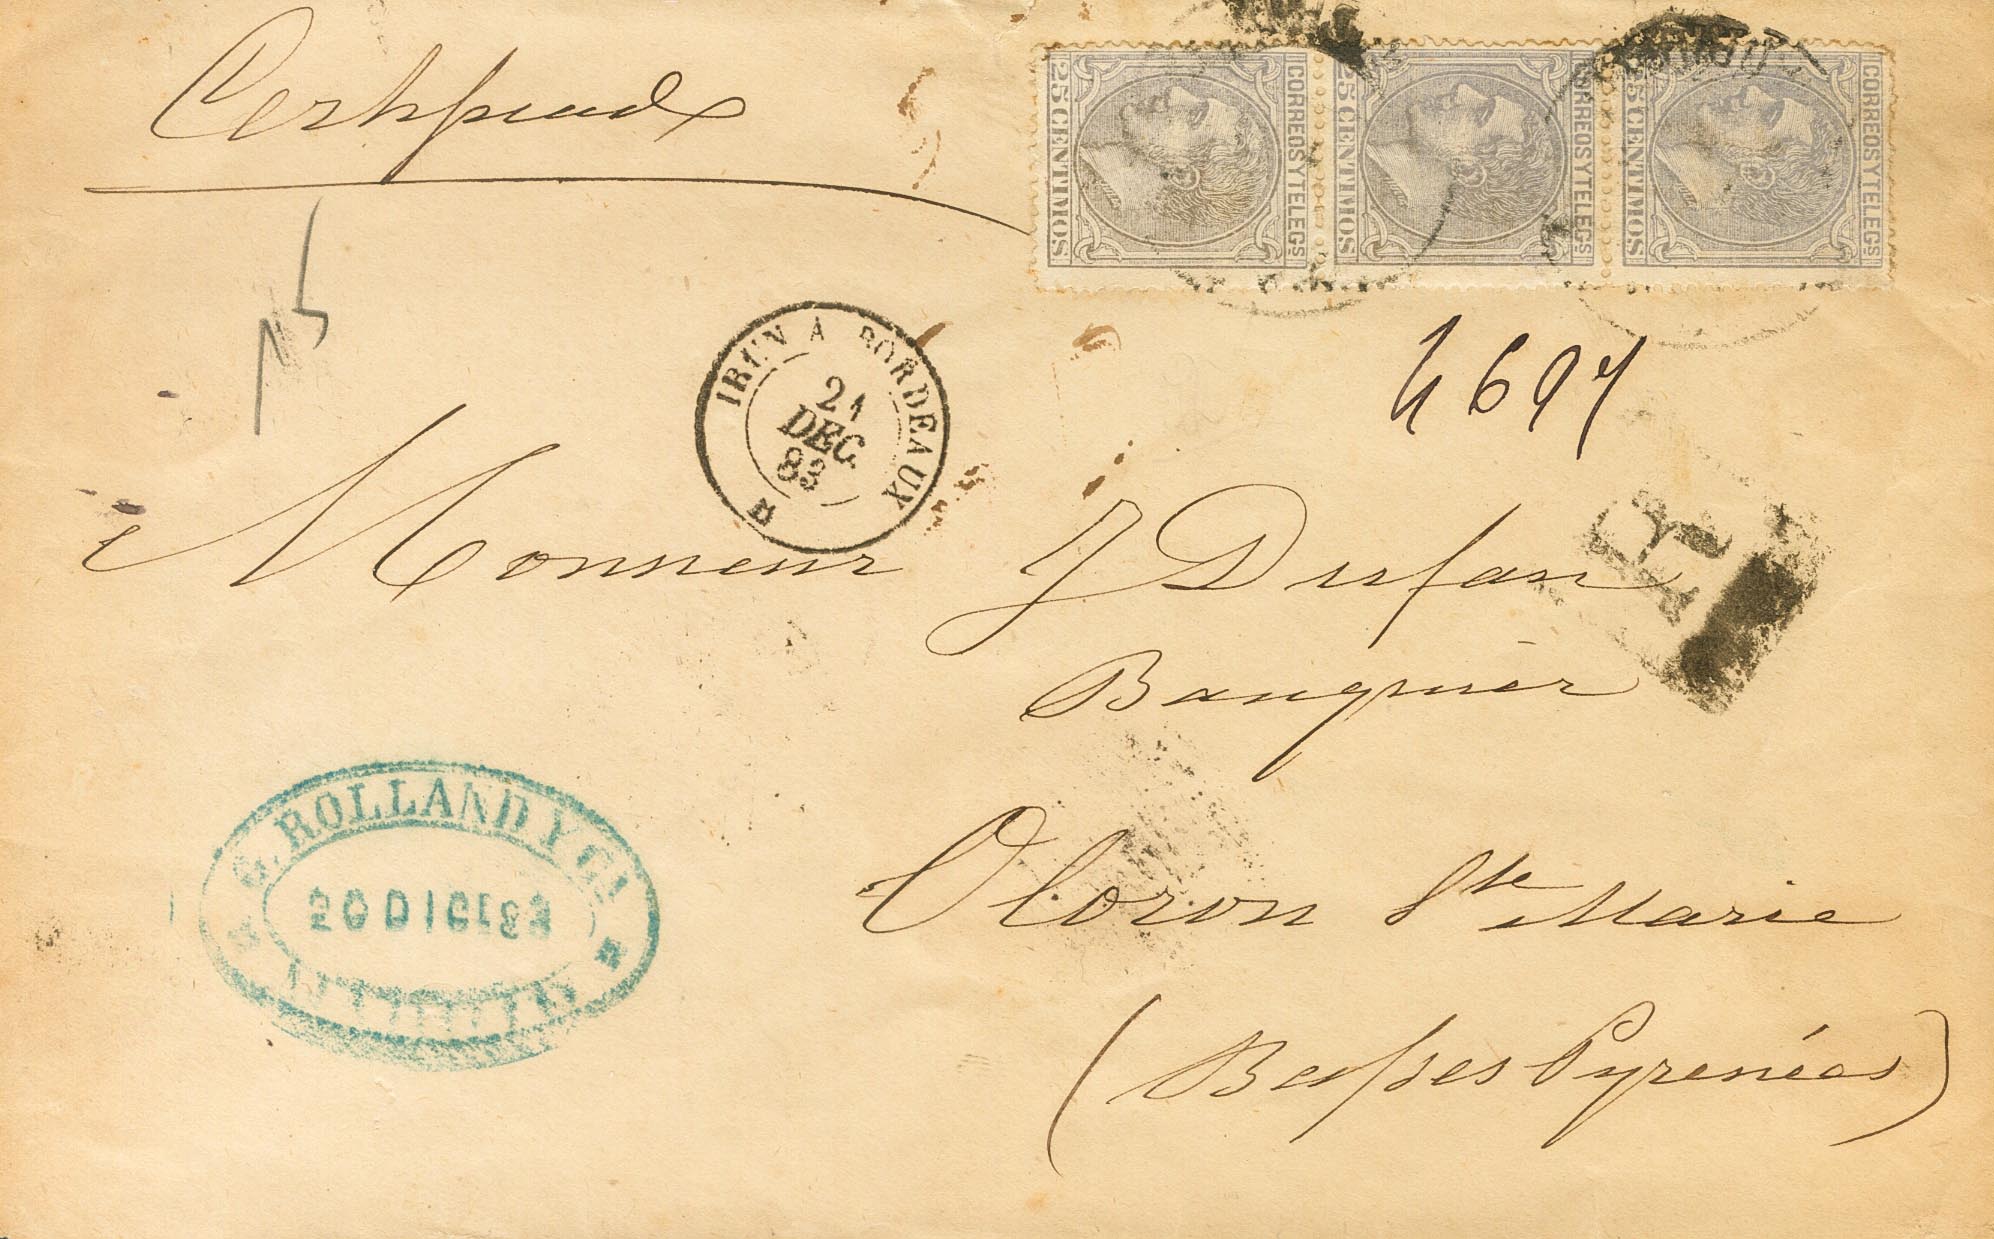 Certificado
25 CENTIMOS CORREOS Y TELEGS
25 CENTIMOS CORREOS Y TELEGS
25 CENTIMOS CORREOS Y TELEGS
IRUN A BORDEAUX
21
DEC.
83
4697
R
Monsieur J Dufau
Banquier
Oloron Ste Marie
(Basses Pyrenées)
G. ROLLAND Y Ca
20 DIC